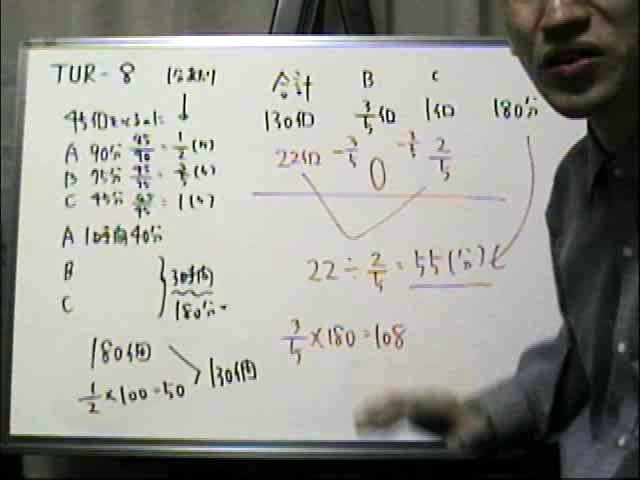 TUR-8 1分あたり
45個をつくるのに
A 90分 45/90 = 1/2 (個)
B 75分 45/75 = 3/5 (個)
C 45分 45/45 = 1 (個)
A 1時間40分
B
C
3時間
180分
180個
1/2 × 100 = 50
130個
合計 B C
130個 3/5個 1個 180分
22個 -3/5 0 -3/5 2/5
22 ÷ 2/5 = 55(分)
3/5 × 180 = 108